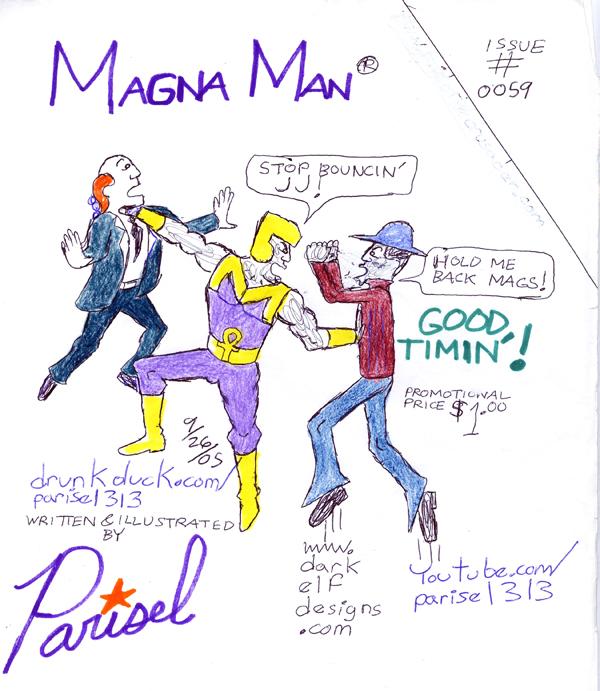 MAGNA MAN®
ISSUE
#
0059
STOP BOUNCIN'
JJ!
HOLD ME
BACK MAGS!
GOOD
TIMIN'!
PROMOTIONAL
PRICE $1.00
9/26/05
drunkduck.com/
parisel313
WRITTEN & ILLUSTRATED
BY
Parisel
www.
dark
elf
designs
.com
Youtube.com/
parisel313